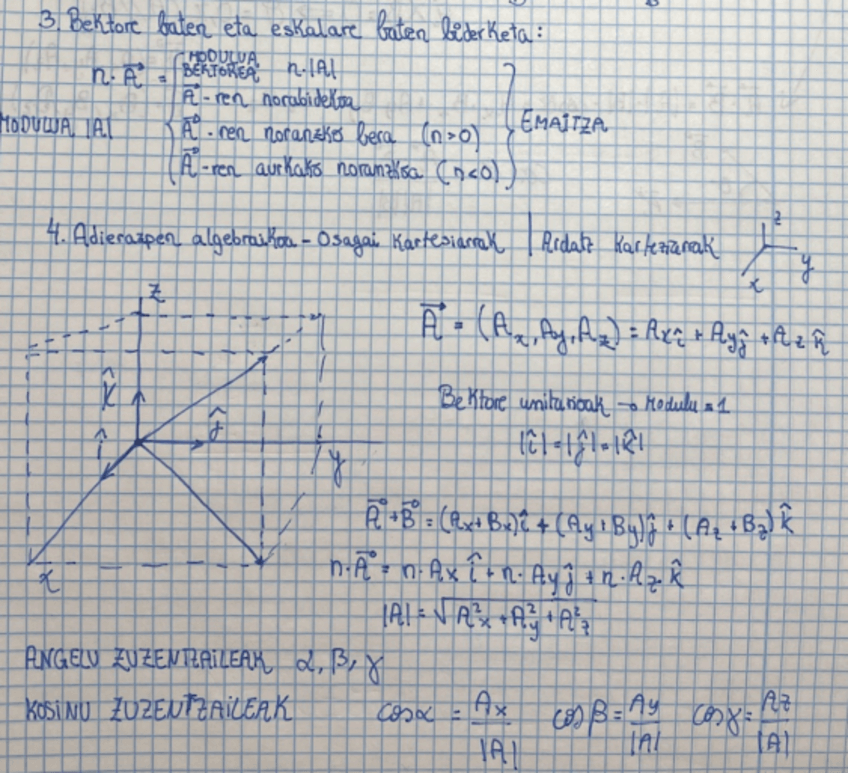 3. Bektore baten eta eskalare baten biderketa:
MODULUA
n·A⃗ = BEKTOREA n·|A|
A⃗-ren norabidekoa
MODULUA |A| A⃗-ren noranzko bera (n>0) EMAITZA
A⃗-ren aurkako noranzkoa (n<0)
4. Adierazpen algebraikoa - Osagai kartesiarrak | Ardatz kartesianak
z
y
x
z
A⃗ = (Ax, Ay, Az) = Ax î + Ay ĵ + Az k̂
k̂
Bektore unitarioak → Modulu = 1
î ĵ
|î| = |ĵ| = |k̂|
y
A⃗ + B⃗ = (Ax + Bx) î + (Ay + By) ĵ + (Az + Bz) k̂
x
n·A⃗ = n·Ax î + n·Ay ĵ + n·Az k̂
|A| = √(A²x + A²y + A²z)
ANGELU ZUZENTZAILEAK α, β, γ
KOSINU ZUZENTZAILEAK cos α = Ax/|A| cos β = Ay/|A| cos γ = Az/|A|